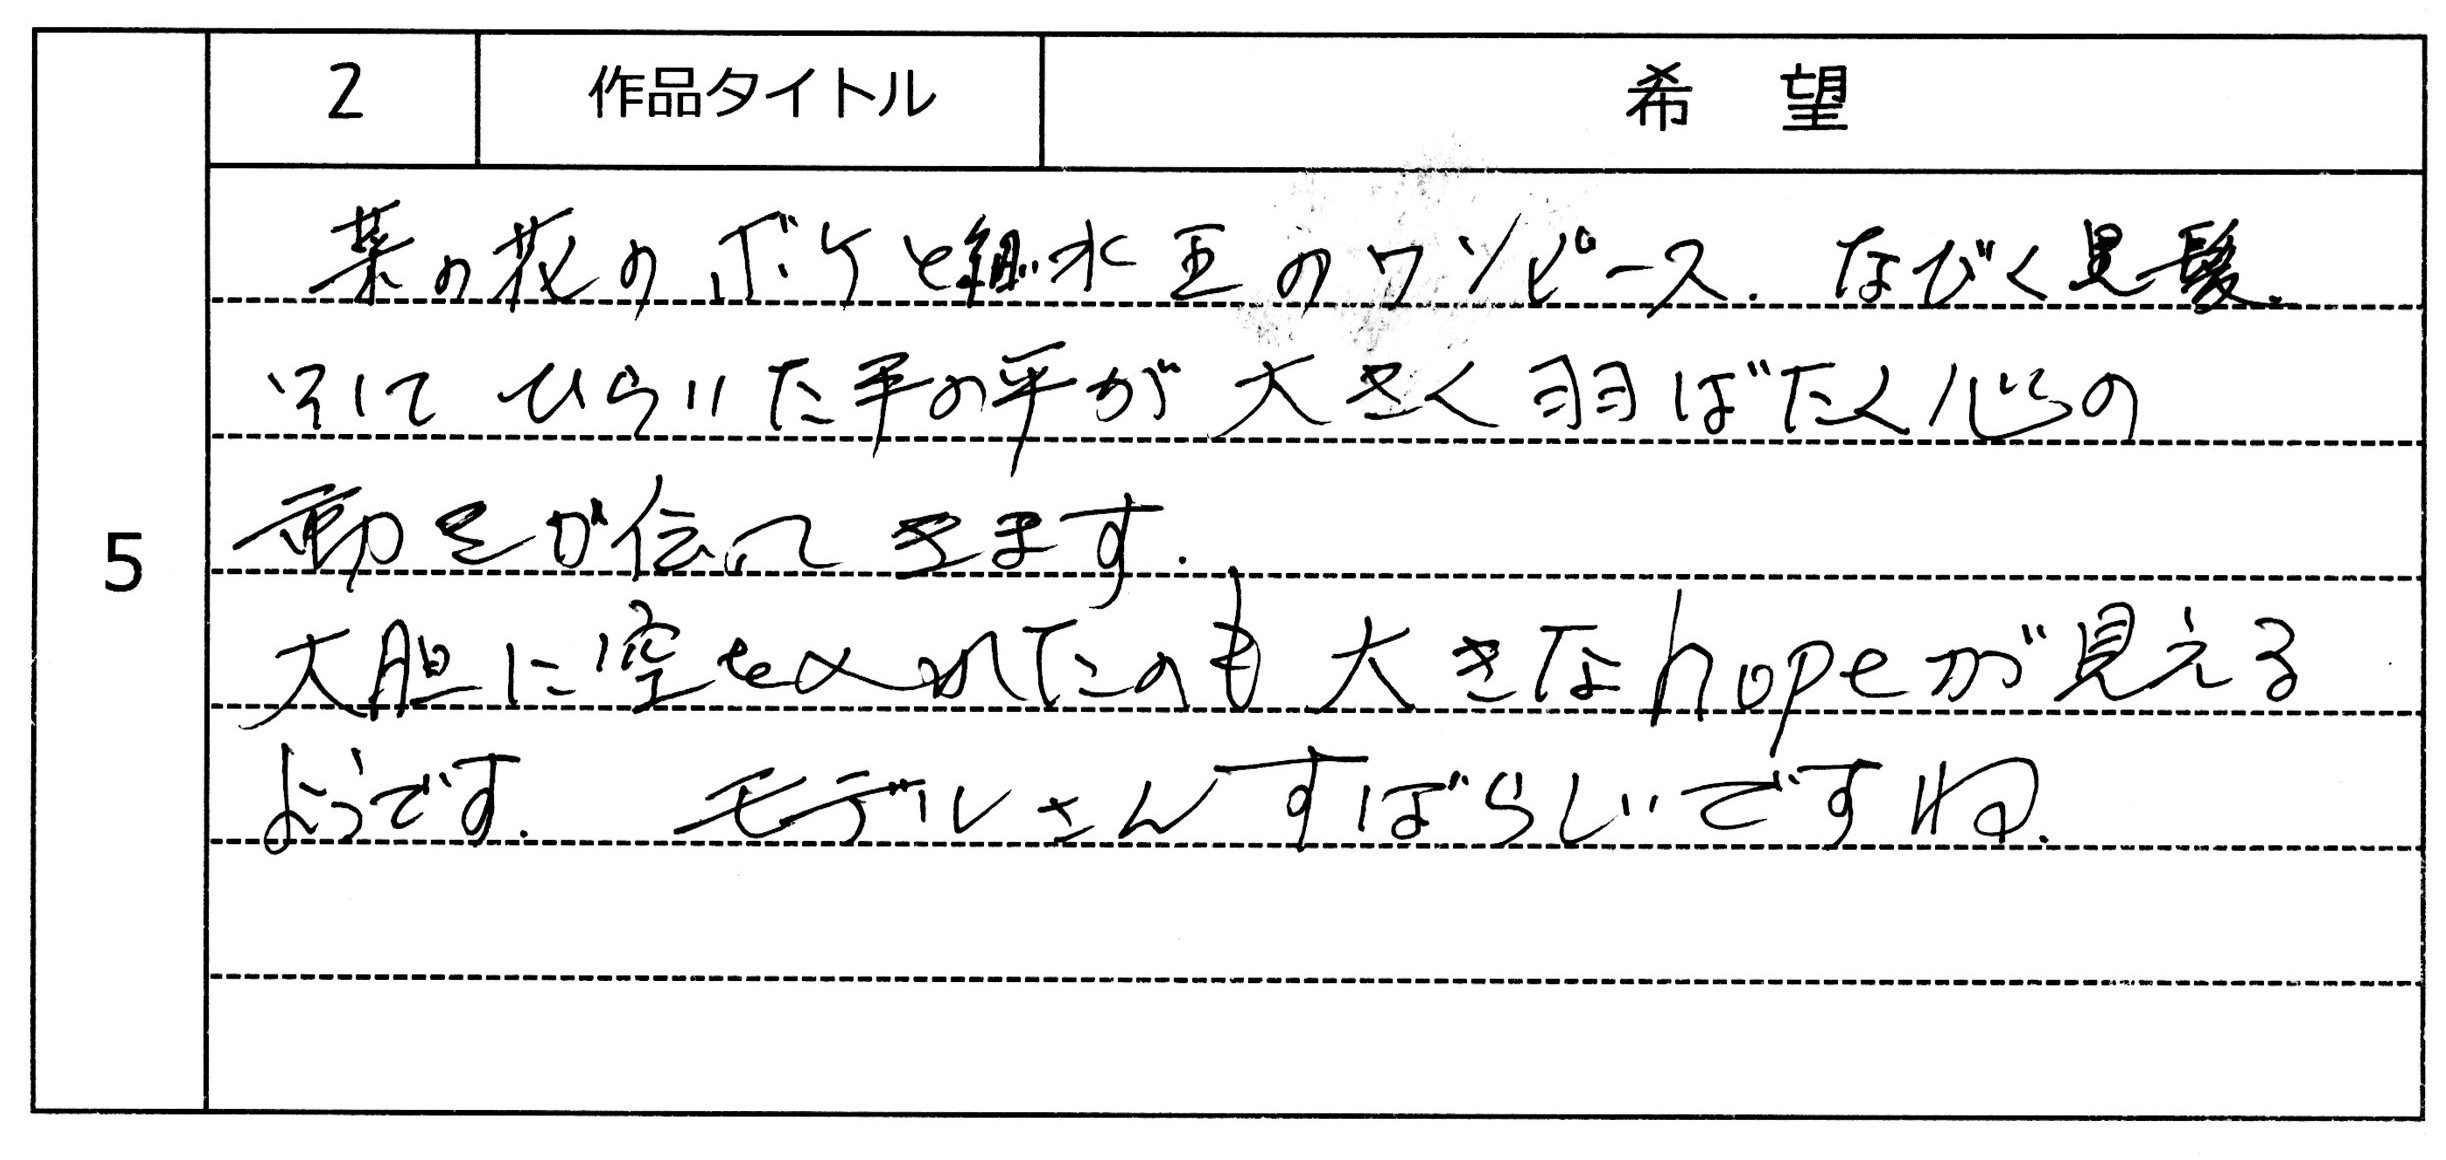 5
2 作品タイトル 希望
菜の花のボケと細水玉のワンピース. なびく黒髪.
そしてひらいた手の平が大きく羽ばたく心の
動きが伝ってきます.
大胆に空を入れたのも大きなhopeが見える
ようです. モデルさんすばらしいですね.